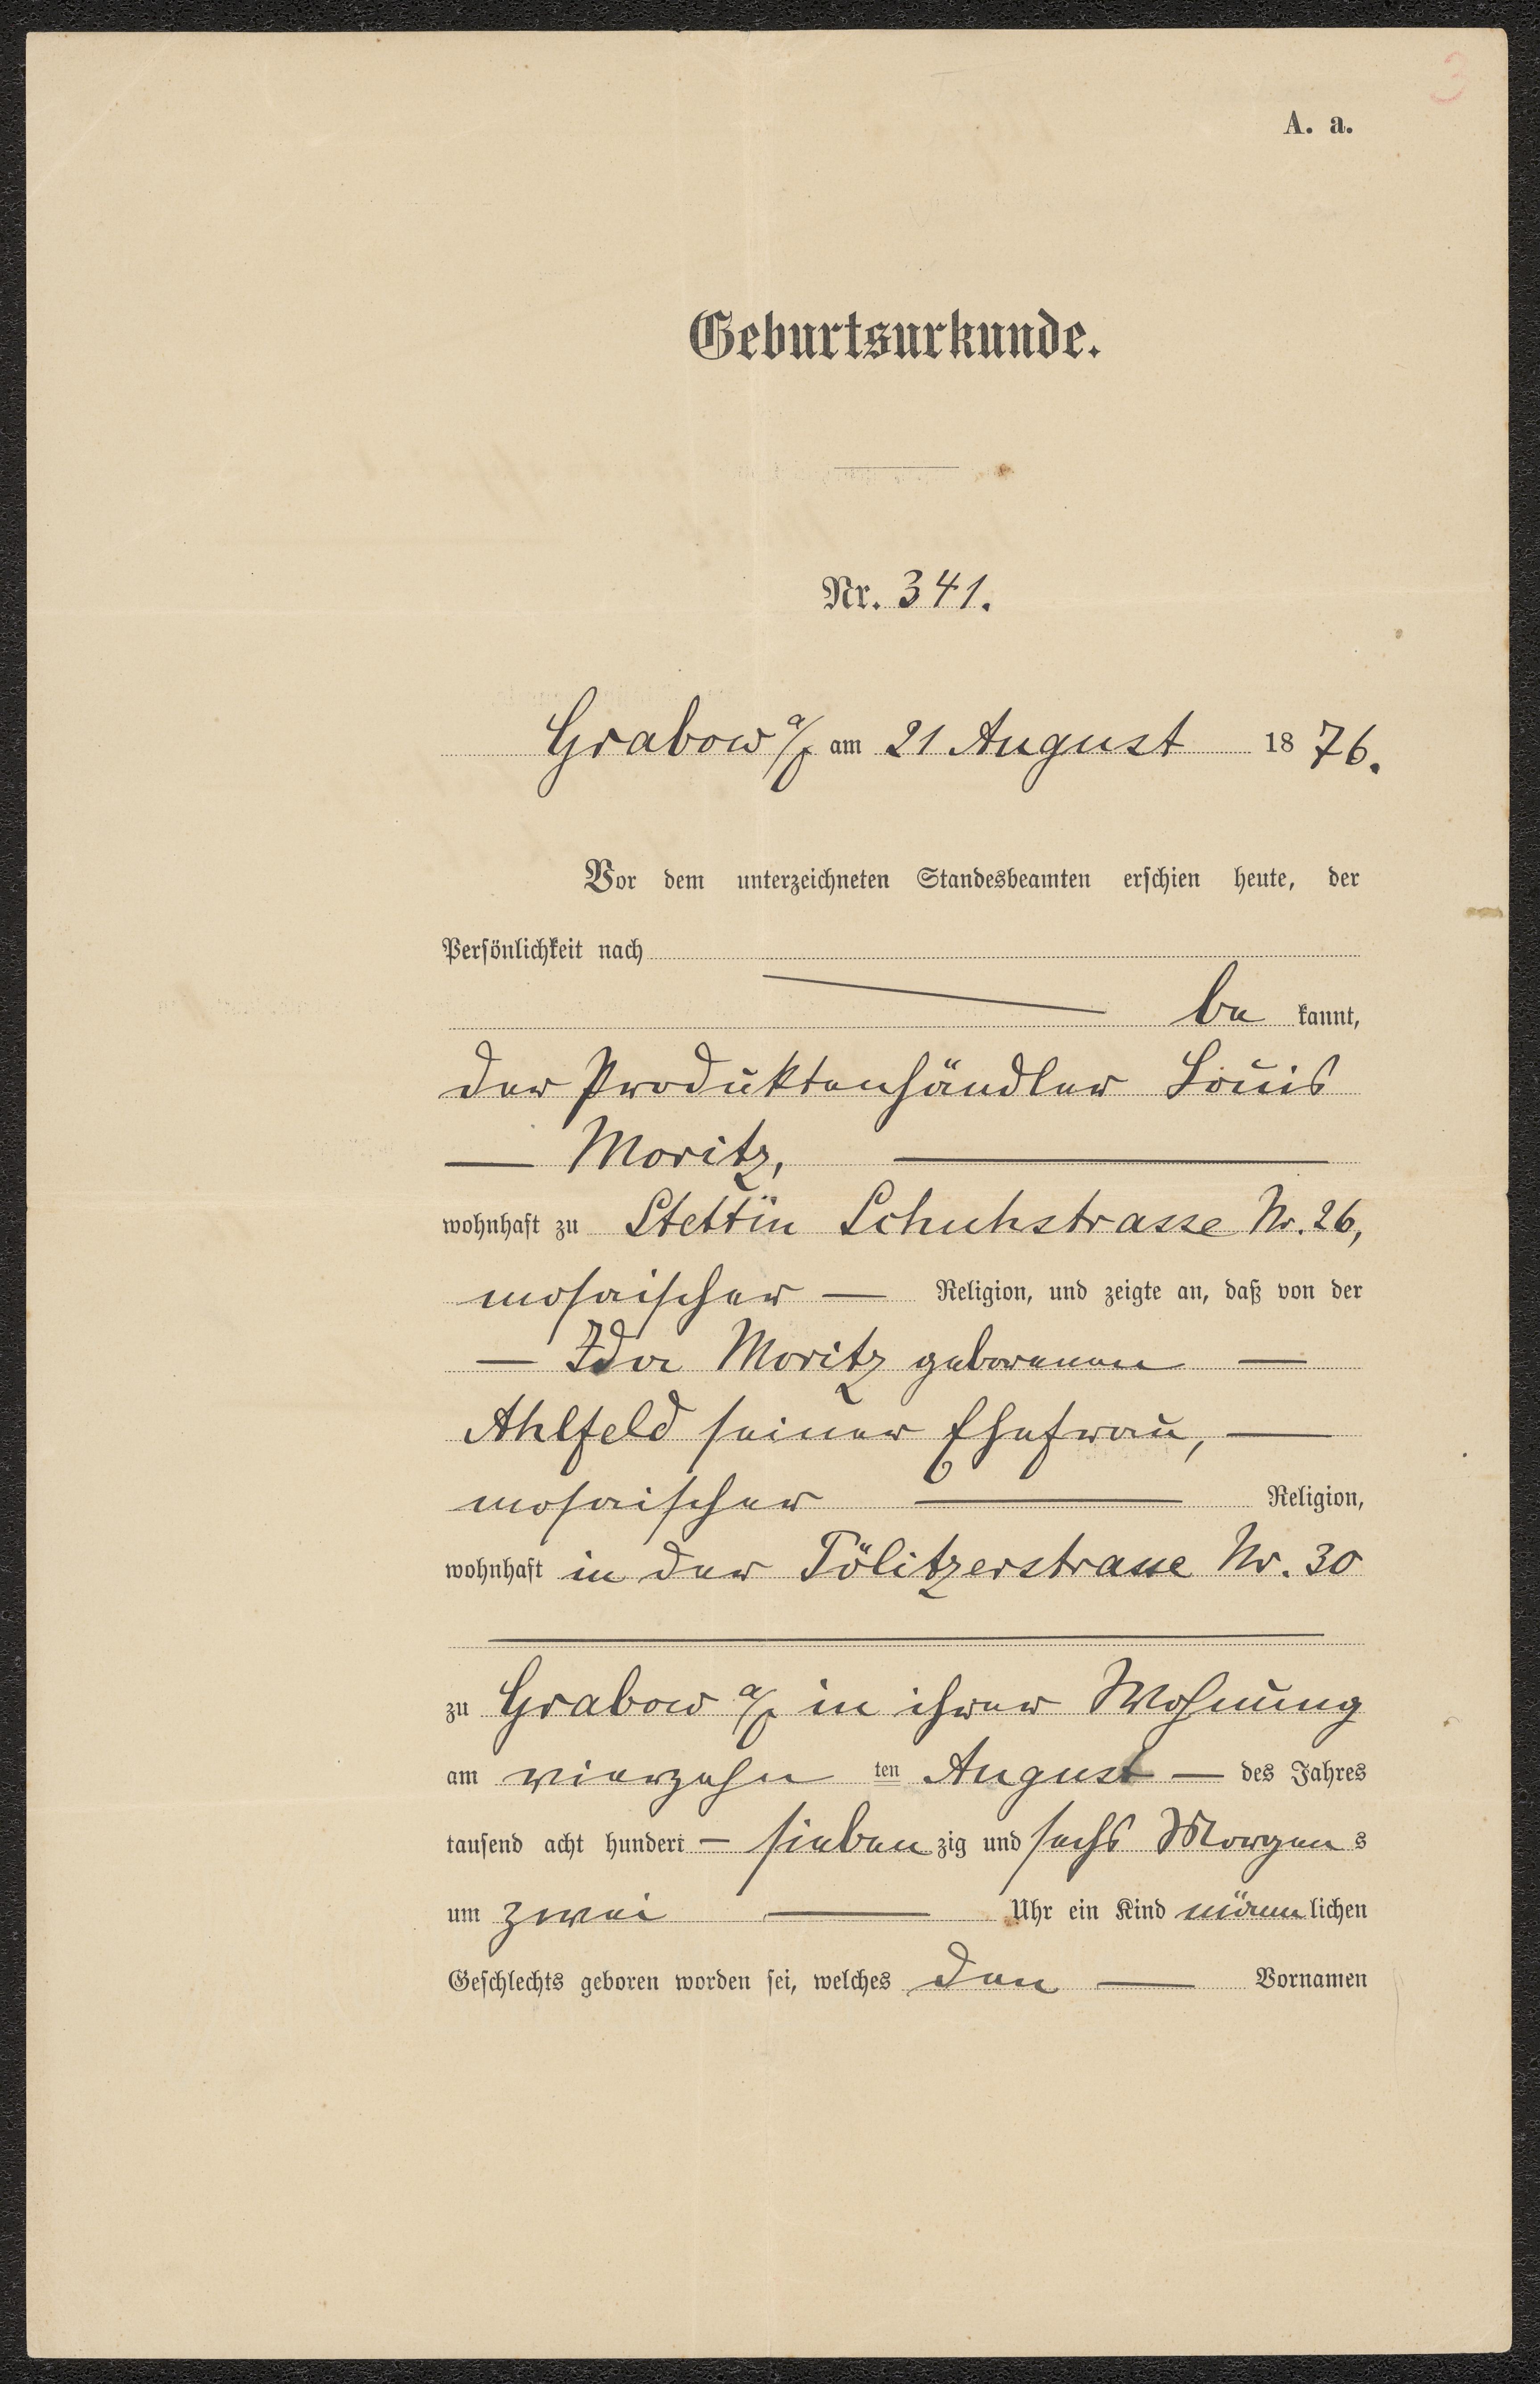 3
A. a.
Geburtsurkunde.
Nr. 341.
Grabow a/ am 21 August 1876.
Vor dem unterzeichneten Standesbeamten erschien heute, der
Persönlichkeit nach
be kannt,
der Produktenhändler Louis
— Moritz, —
wohnhaft zu Stettin Schuhstrasse Nr. 26,
mosaischer — Religion, und zeigte an, daß von der
— Ida Moritz geborenen —
Ahlfeld seiner Ehefrau, —
mosaischer — Religion,
wohnhaft in der Pölitzerstrasse Nr. 30
zu Grabow a/ in ihrer Wohnung
am vierzehn ten August — des Jahres
tausend acht hundert — sieben zig und sechs Morgen s
um zwei — Uhr ein Kind männ lichen
Geschlechts geboren worden sei, welches den — Vornamen